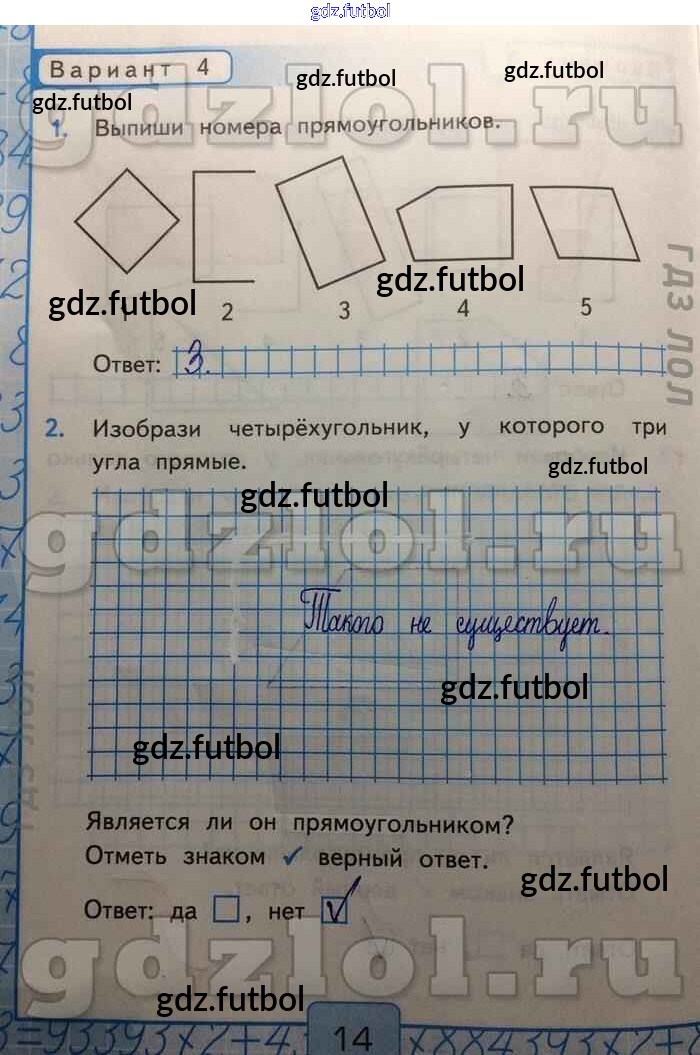 gdz.futbol
Вариант 4
gdz.futbol
gdz.futbol
gdz.futbol
gdzlol.ru
1. Выпиши номера прямоугольников.
gdz.futbol
gdz.futbol
1 2 3 4 5
ГДЗ ЛОЛ
Ответ: 3.
2. Изобрази четырёхугольник, у которого три
угла прямые.
gdz.futbol
gdz.futbol
gdzlol.ru
Такого не существует.
gdz.futbol
gdz.futbol
ГДЗ ЛОЛ
Является ли он прямоугольником?
Отметь знаком ✓ верный ответ.
gdz.futbol
Ответ: да ☐, нет ☑
gdzlol.ru
gdz.futbol
14